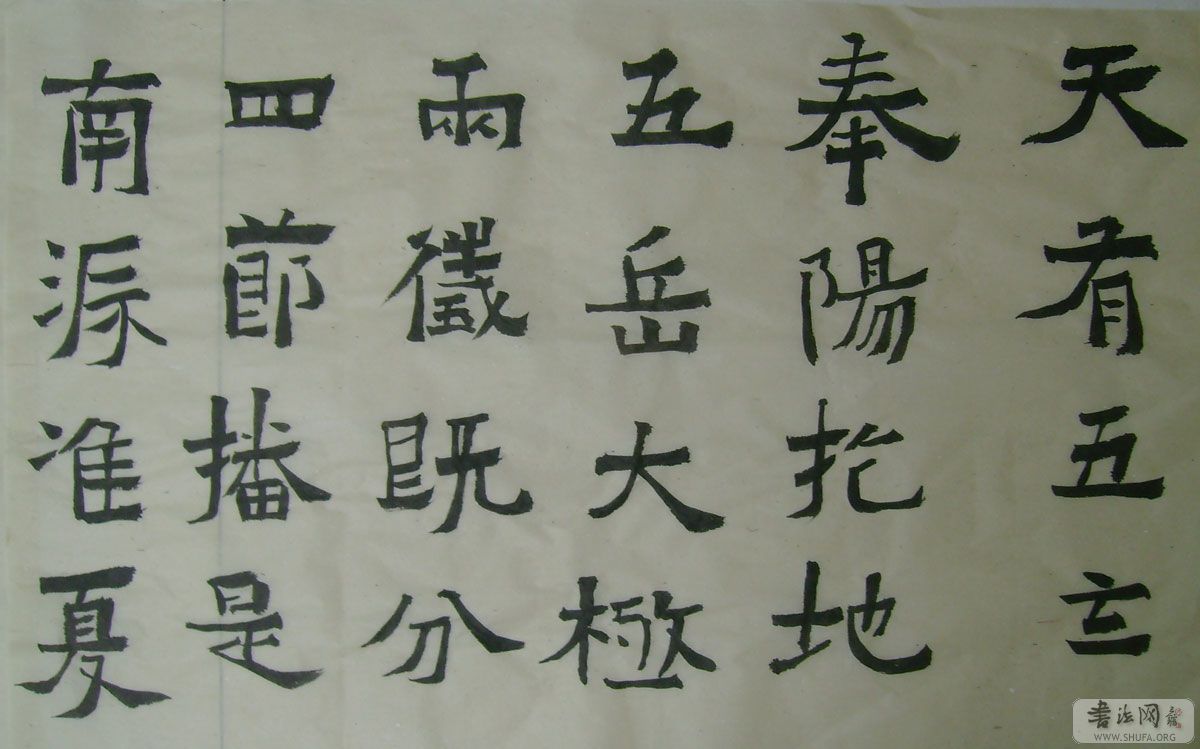 天有五
奉陽地
五岳大極
兩儀既分
四節播是
南派准夏
書法网
WWW.SHUFA.ORG